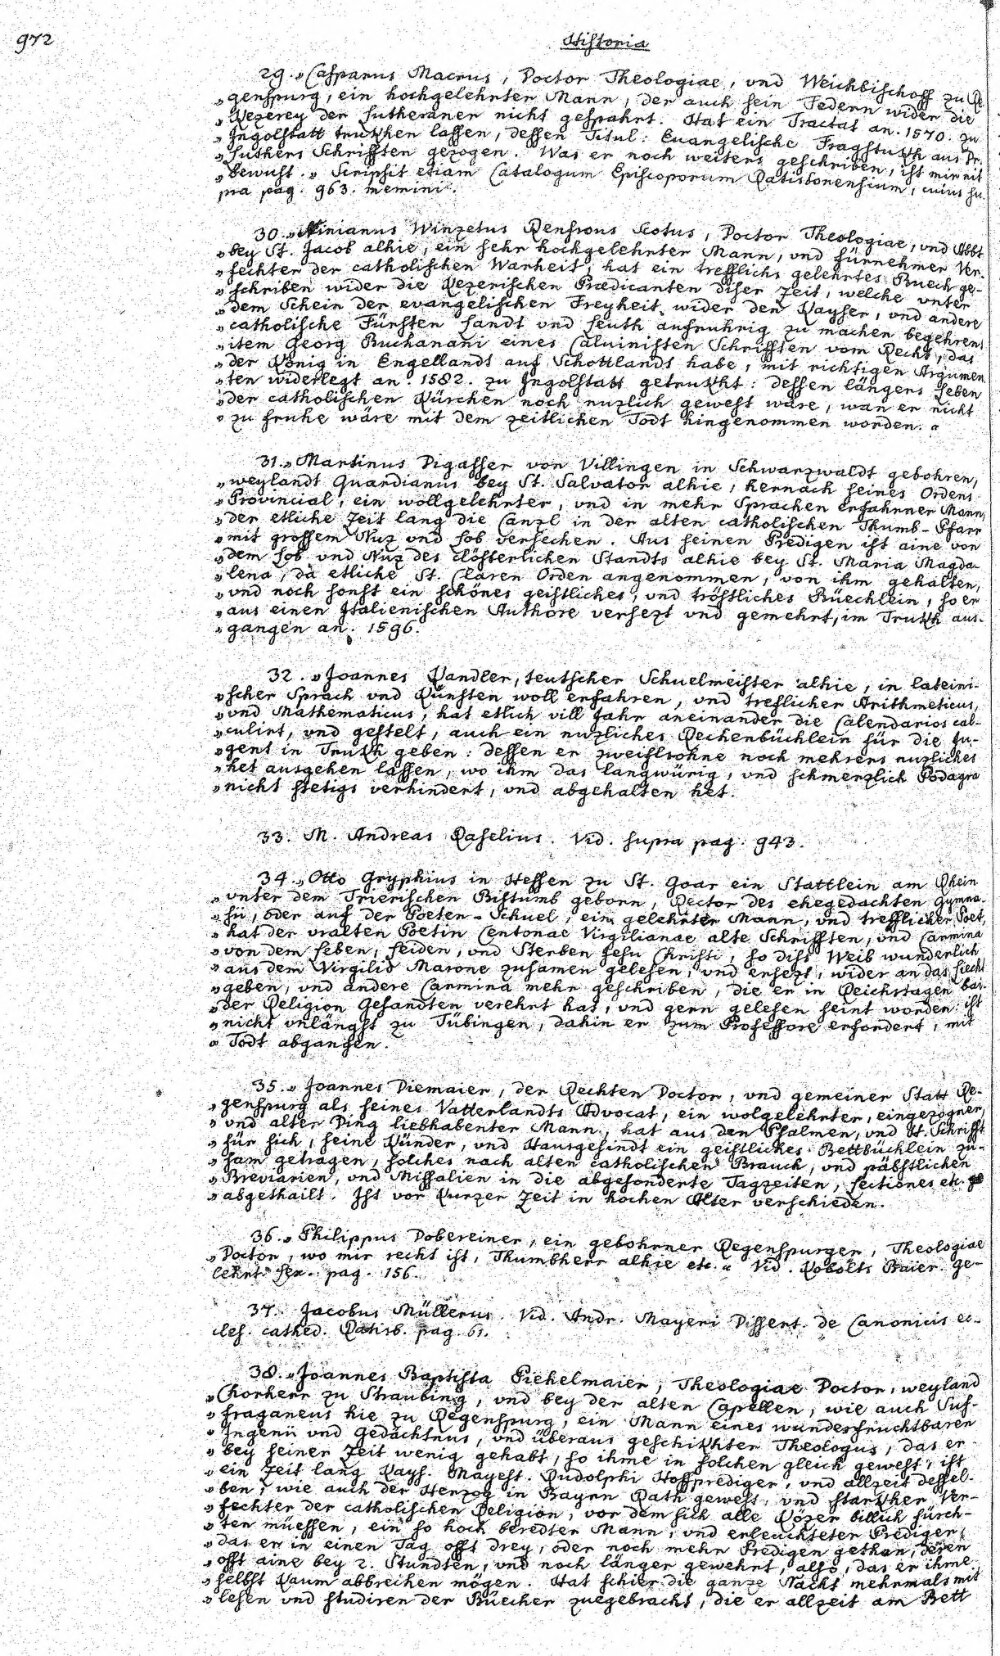 972
Historia
29. „Casparus Macrus, Doctor Theologiae, vnd Weichbischoff zu Re-
„genspurg, ein hochgelehrter Mann, der auch sein Federn wider die
„Kezerey der Lutheraner nicht gespahrt. Hat ein Tractat an. 1570. zu
„Ingolstatt trukhen lassen, dessen Titul: Euangelische Fragstukh aus Dr.
„Luthers Schrifften gezogen. Was er noch weiters geschriben, ist mir nit
„bewust.„ Scripsit etiam Catalogum Episcoporum Ratisbonensium, cuius su-
pra pag. 963. memini.
30. „Ninianus Winzetus Renfrous Scotus, Doctor Theologiae, vnd Abbt
„bey St. Jacob alhie, ein sehr hochgelehrter Mann, vnd fürnehmer Ver-
„fechter der catholischen Warheit, hat ein trefflichs gelehrtes Buech ge-
„schriben wider die Kezerischen Praedicanten diser Zeit, welche vnter
„dem Schein der evangelischen Freyheit wider den Kayser, vnd andere
„catholische Fürsten Landt vnd Leuth aufruhrig zu machen begehren,
„item Georg Buchanani eines Caluinisten Schrifften vom Recht, das
„der König in Engellandt auf Schottlandt habe, mit richtigen Argumen-
„ten widerlegt an. 1582. zu Ingolstatt getrukht: dessen längers Leben
„der catholischen Kürchen noch nuzlich gewest wäre, wan er nicht
„zu fruhe wäre mit dem zeitlichen Todt hingenommen worden. „
31. „Martinus Digasser von Villingen in Schwarzwaldt gebohren,
„weylandt Guardianus bey St. Salvator alhie, hernach seines Ordens
„Provincial, ein wollgelehrter, vnd in mehr Sprachen erfahrner Mann,
„der etliche Zeit lang die Canzl in der alten catholischen Thumb-Pfarr
„mit grossem Nuz vnd Lob versechen. Aus seinen Predigen ist aine von
„dem Lob vnd Nuz des clösterlichen Standts alhie bey St. Maria Magda-
„lena, da etliche St. Claren Orden angenommen, von ihm gehalten,
„vnd noch sonst ein schönes geistliches, vnd tröstliches Büechlein, so er
„aus einen Italienischen Authore versezt vnd gemehrt, im Trukh aus-
„gangen an. 1596.
32. „Joannes Kandler, teutscher Schuelmeister alhie, in lateini-
„scher Sprach vnd Künsten woll erfahren, vnd treflicher Arithmeticus,
„vnd Mathematicus, hat etlich vill Jahr aneinander die Calendarios cal-
„culirt, vnd gestelt, auch ein nuzliches Rechenbüchlein für die Ju-
„gent in Trukh geben: dessen er zweiflsohne noch mehrers nuzliches
„het ausgehen lassen, wo ihm das langwürig, vnd schmerzlich Podagra
„nicht stetigs verhindert, vnd abgehalten het.
33. M. Andreas Raselius. Vid. supra pag. 943.
34. „Otto Gryphius in Hessen zu St. Goar ein Stattlein am Rhein
„vnter dem Trierischen Bistumb geborn, Rector des ehegedachten Gymna-
„sii, oder auf der Poeten-Schuel, ein gelehrter Mann, vnd trefflicher Poet,
„hat der vralten Poetin Centonae Virgilianae alte Schrifften, vnd Carmina
„von dem Leben, Leiden, vnd Sterben Jesu Christi, so diss Weib wunderlich
„aus dem Virgilio Marone zusamen gelesen, vnd ersezt, wider an das Liecht
„geben, vnd andere Carmina mehr geschriben, die er in Reichstagen bai-
„der Religion Gesandten verehrt hat, vnd gern gelesen seint worden: ist
„nicht vnlängst zu Tübingen, dahin er zum Professore erfordert, mit
„Todt abgangen.
35. „Joannes Diemaier, der Rechten Doctor, vnd gemeiner Statt Re-
„genspurg als seines Vatterlandts Advocat, ein wolgelehrter, eingezogner,
„vnd alter Ding liebhabenter Mann, hat aus den Psalmen, vnd H. Schrifft
„für sich, seine Künder, vnd Hausgesindt ein geistliches Bettbüchlein zu-
„sam getragen, solches nach alten catholischen Brauch, vnd päbstlichen
„Breviarien, vnd Missalien in die abgesonderte Tagzeiten, Lectiones etc.
„abgethailt. Ist vor kurzer Zeit in hochen Alter verschieden.
36. „Philippus Dobereiner, ein gebohrner Regenspurger, Theologiae
„Doctor, wo mir recht ist, Thumbherr alhie etc. „ Vid. Kobolts Baier. Ge-
lehrt. Lex. pag. 156.
37. Jacobus Müllerus. Vid. Andr. Mayeri Dissert. de Canonicis ec-
cles. cathed. Ratisb. pag. 61.
38. „Joannes Baptista Pichelmaier, Theologiae Doctor, weyland
„Chorherr zu Straubing, vnd bey der alten Capellen, wie auch Suf-
„fraganeus hie zu Regenspurg, ein Mann eines wunderfruchtbaren
„Ingenii vnd Gedächtnus, vnd überaus geschikhter Theologus, das er
„bey seiner Zeit wenig gehabt, so ihme in solchen gleich gewest, ist
„ein Zeit lang Kays. Mayest. Rudolphi Hoffprediger, vnd allzeit dessel-
„ben, wie auch der Herzog in Bayrn Rath gewest, vnd starkher Ver-
„fechter der catholischen Religion, vor dem sich alle Käzer billich fürch-
„ten müessen, ein so hoch beredter Mann, vnd erleuchteter Prediger,
„das er in einen Tag offt drey, oder noch mehr Predigen gethan, deren
„offt aine bey 2. Stundten, vnd noch länger gewehrt, also, das er ihme
„selbst kaum abbrechen mögen. Hat schier die ganze Nacht mehrmals mit
„lesen vnd studiren der Büecher zuegebracht, die er allzeit am Bett